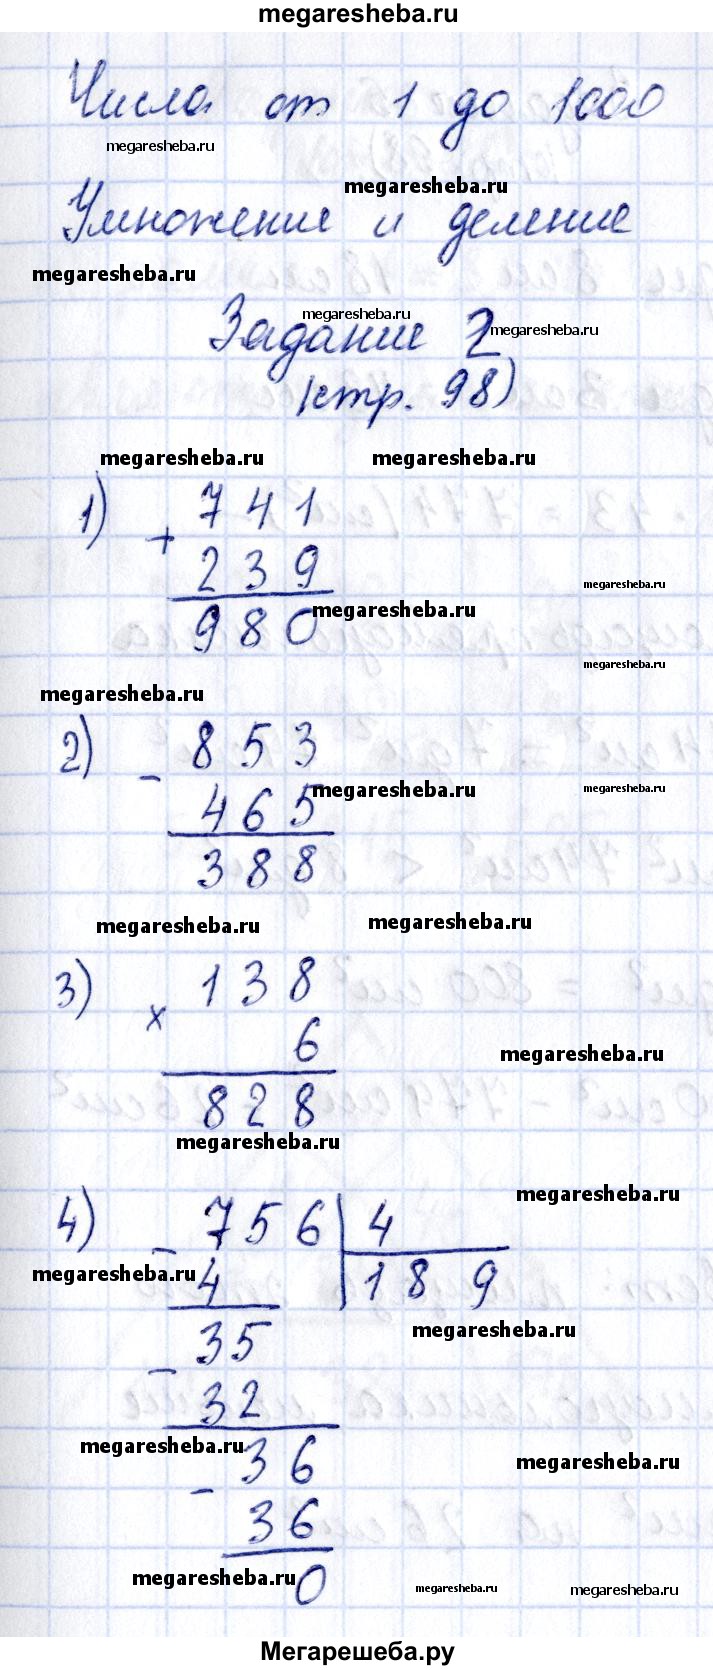 megaresheba.ru
Числа от 1 до 1000
megaresheba.ru
megaresheba.ru
Умножение и деление
megaresheba.ru
megaresheba.ru
Задание 2
megaresheba.ru
(стр. 98)
megaresheba.ru megaresheba.ru
1) 741
+
239
megaresheba.ru
megaresheba.ru
980
megaresheba.ru
megaresheba.ru
2) 853
-
megaresheba.ru
megaresheba.ru
465
388
megaresheba.ru megaresheba.ru
3) 138
x
6
megaresheba.ru
828
megaresheba.ru
megaresheba.ru
4) - 756 | 4
megaresheba.ru
4 189
megaresheba.ru
- 35
32
megaresheba.ru
megaresheba.ru
- 36
36
megaresheba.ru
0
megaresheba.ru
megaresheba.ru
Мегарешеба.ру